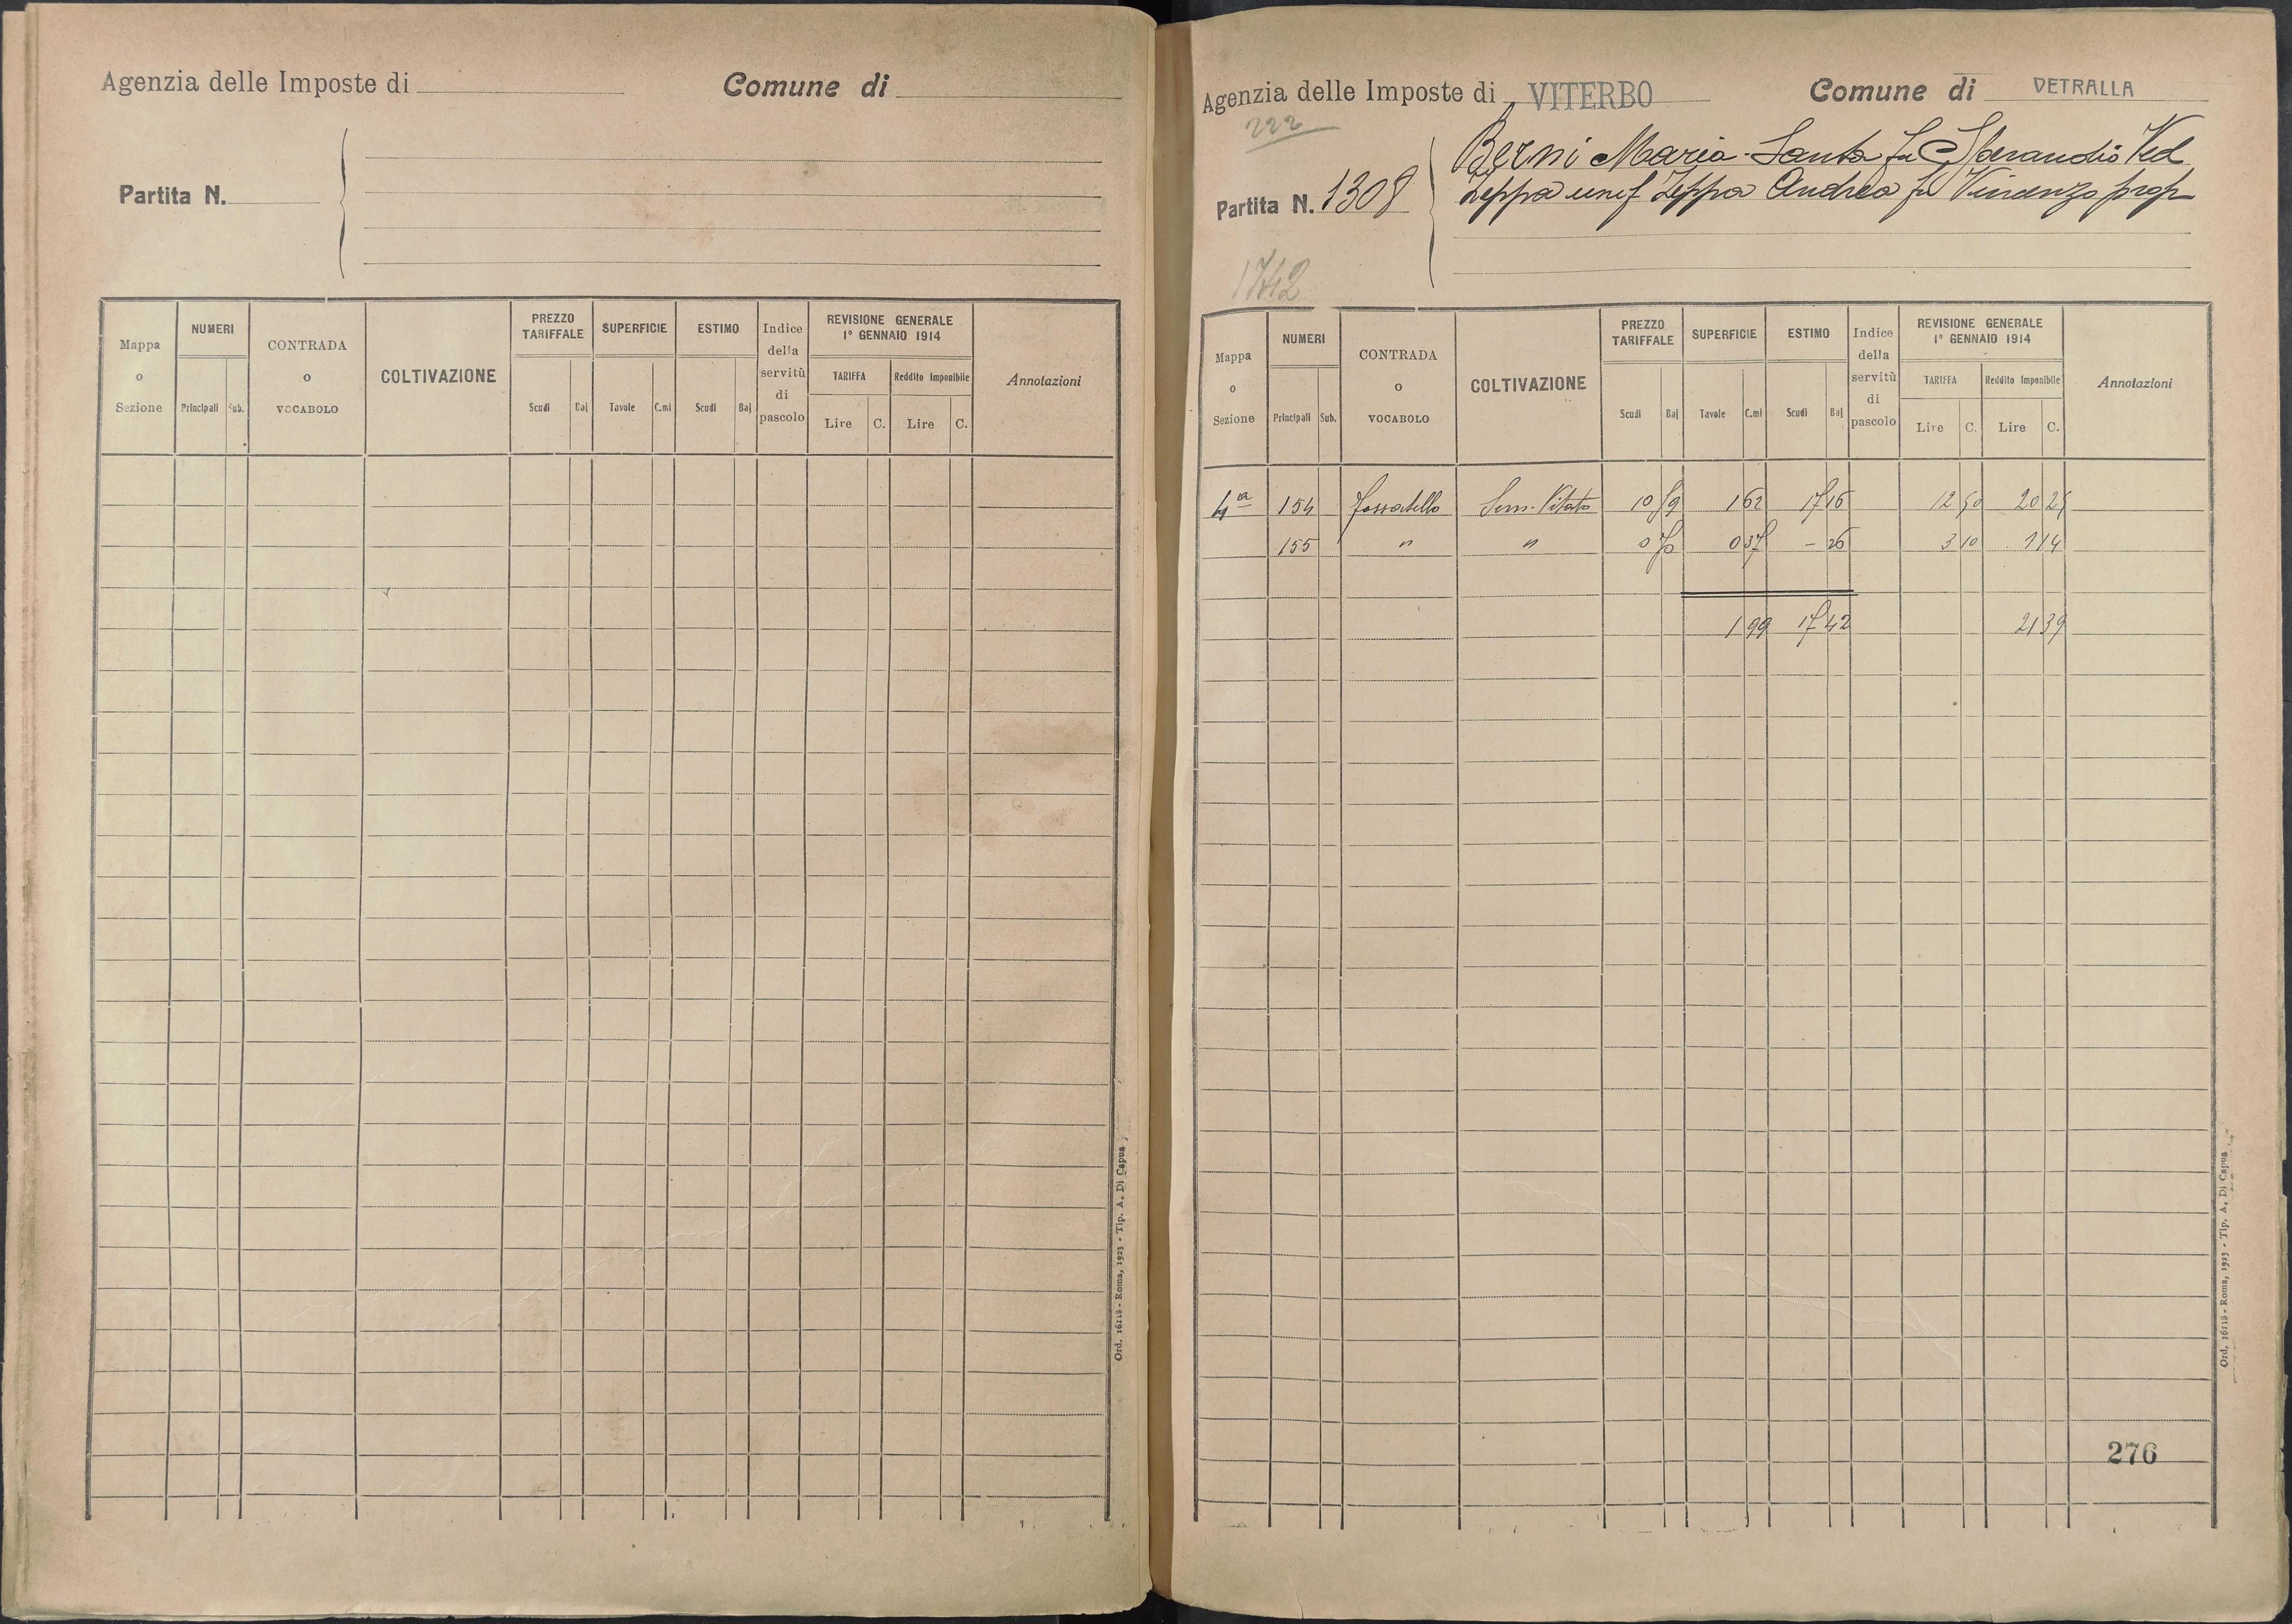 Agenzia delle Imposte di
Comune di
Partita N.
Mappa o Sezione
NUMERI
Principali Sub.
CONTRADA o VOCABOLO
COLTIVAZIONE
PREZZO TARIFFALE
Scudi Baj
SUPERFICIE
Tavole C.mi
ESTIMO
Scudi Baj
Indice della servitù di pascolo
REVISIONE GENERALE
1° GENNAIO 1914
TARIFFA Reddito Imponibile
Lire C. Lire C.
Annotazioni
Ord. 16118 - Roma, 1923 - Tip. A. Di Capua
Agenzia delle Imposte di VITERBO Comune di VETRALLA
222
Partita N. 1308
Berni Maria Santa fu Sperandio Ved
Zeppa unif Zeppa Andrea fu Vincenzo prop
1742
Mappa o Sezione
NUMERI
Principali Sub.
CONTRADA o VOCABOLO
COLTIVAZIONE
PREZZO TARIFFALE
Scudi Baj
SUPERFICIE
Tavole C.mi
ESTIMO
Scudi Baj
Indice della servitù di pascolo
REVISIONE GENERALE
1° GENNAIO 1914
TARIFFA Reddito Imponibile
Lire C. Lire C.
Annotazioni
4a 154 Fossatello Sem. Vitato 10 59 1 62 17 16 12 50 20 25
155 " " 0 70 0 37 - 26 3 10 1 14
1 99 17 42 21 39
276
Ord. 16118 - Roma, 1923 - Tip. A. Di Capua